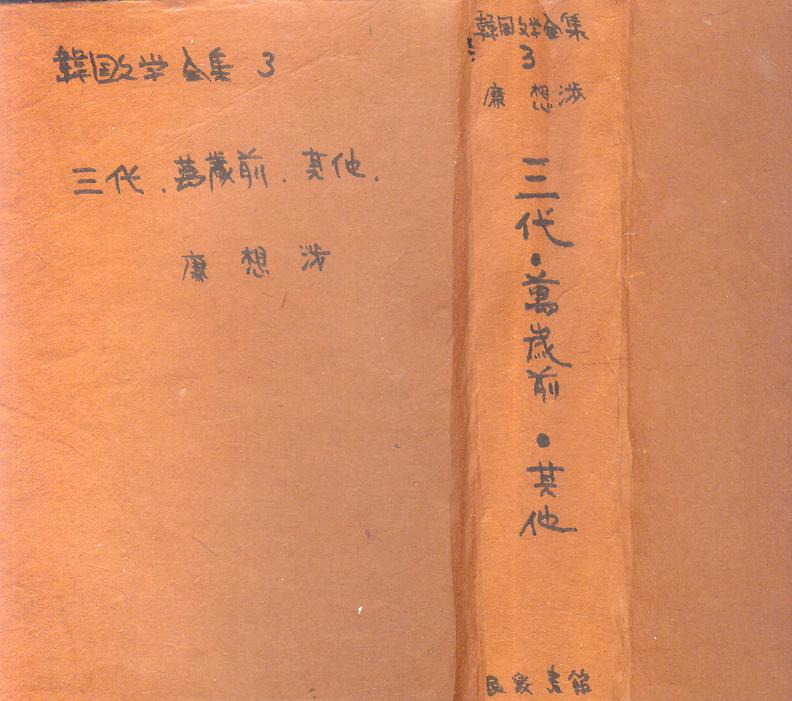 韓国文学全集 3
三代．萬歲前．其他．
廉 想 渉
韓国文学全集
3
廉 想渉
三代・萬歲前・其他
民衆書館